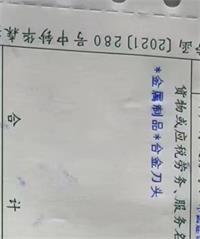 函[2021]280号中钞华森
货物或应税劳务、服务名
*金属制品*合金刀头
合计